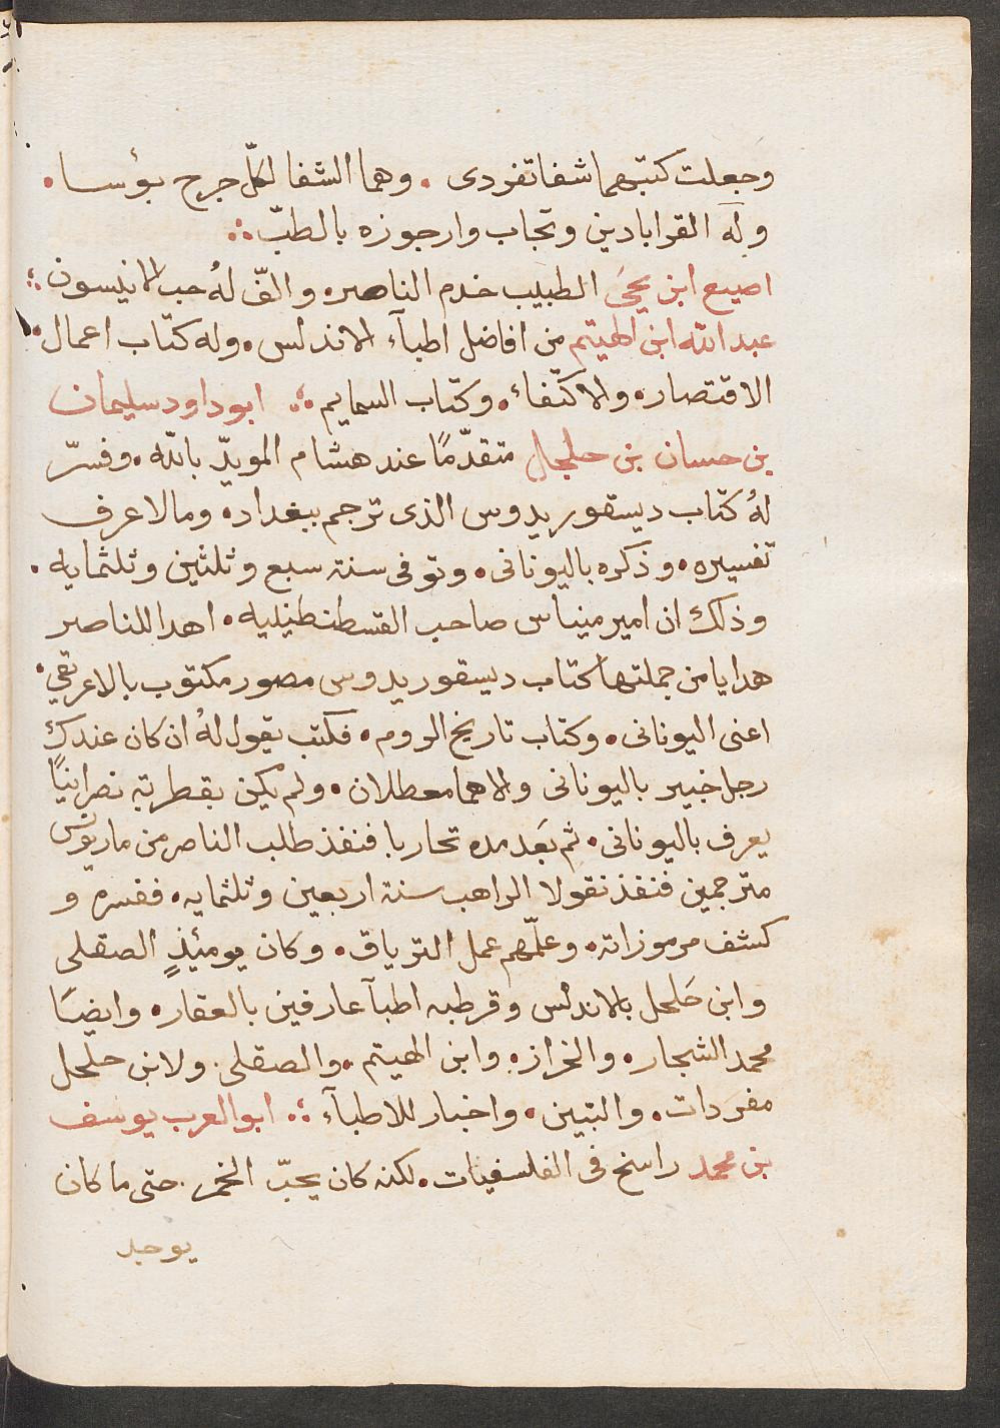 وجعلت كتبهما شفا تفردى . وهما الشفا لكلّ جرح بؤسا .
وله القراباديـن وتجاب وارجوزه بالطبّ ؞
اصبع ابن يحَيَ الطبيب خدم الناصر . والفّ لهُ حب الانيسون ؞
عبد الله ابن الهيتم من افاضل اطبآء الاندلس . وله كتاب اعمال .
الاقتصار . والاكتفاء . وكتاب السمايم ؞ ابو داود سليمان
بن حسان بن حلجل متقدّمًا عند هشام المويدّ بالله . وفسرّ
لهُ كتاب ديسقوريدوس الذى ترجم ببغداد . وما لا عرف
تفسيره . وذكره باليونانى . وتوفى سنة سبع وثلثين وثلثمايه .
وذلك ان امير ميناس صاحب القسطنطينيليه . اهدا للناصر
هدايا من جملتها كتاب ديسقوريدوس مصور مكتوب بالاغريقي .
اعنى اليونانى . وكتاب تاريخ الروم . فكتب يقول لهُ ان كان عندك
رجل خبير باليونانى والا هما معطلان . ولم يكين بقطربة نصرانيًا
يعرف باليونانى . ثم بَعد مده تحاربا فنفذ طلب الناصر من
مترجمين فنفذ نقولا الراهب سنة اربعين وثلثمايه . ففسره و
كشف مرموزاته . وعلّمهم عمل الترياق . وكان يومئذٍ الصقلى
وابن حَلحل بالاندلس وقرطبه اطبآ عارفين بالعقار . وايضًا
محمد الشجار . والخراز . وابن الهيتم . والصقلى . ولابن حلجل
مفردات . والتبين . واخبار للاطبآء ؞ ابو العرب يوسف
بن محمد راسخ فى الفلسفيات . لكنه كان يحبّ الخمر . حتى ما كان
يوجد